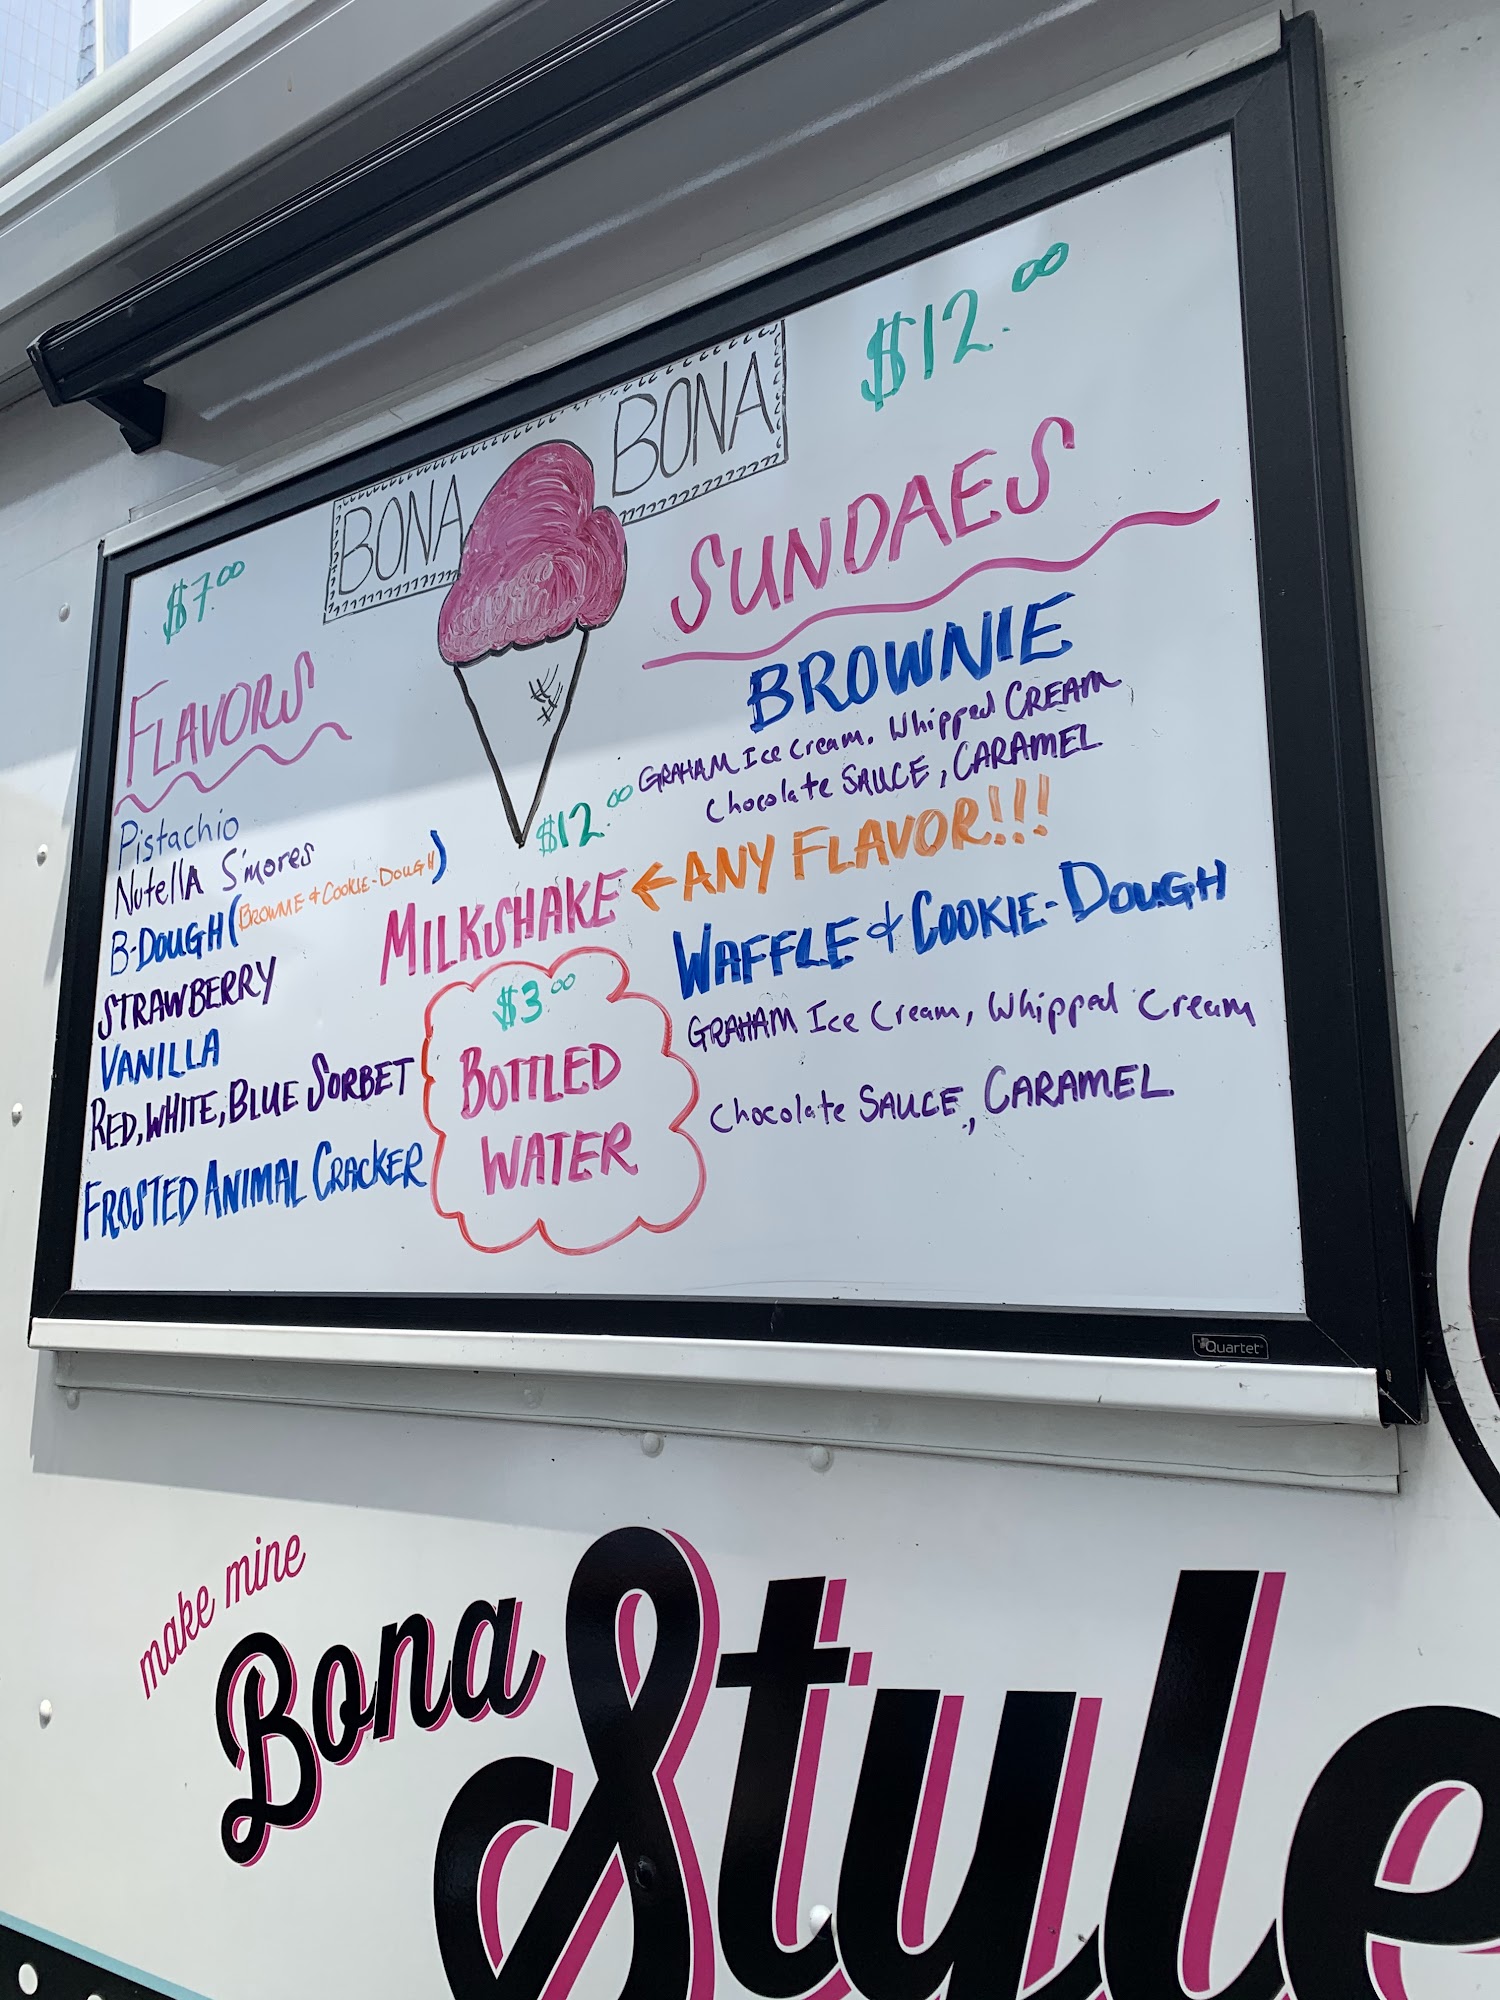 BONA BONA
$7.00
FLAVORS
Pistachio
Nutella S'mores
B-DOUGH (BROWNIE & COOKIE-DOUGH)
STRAWBERRY
VANILLA
RED, WHITE, BLUE SORBET
FROSTED ANIMAL CRACKER
$12.00
MILKSHAKE ← ANY FLAVOR!!!
$3.00
BOTTLED
WATER
$12.00
SUNDAES
BROWNIE
GRAHAM Ice Cream. Whipped CREAM
Chocolate SAUCE, CARAMEL
WAFFLE & COOKIE-DOUGH
GRAHAM Ice Cream, Whipped Cream
Chocolate SAUCE, CARAMEL
Quartet
make mine
Bona
Style